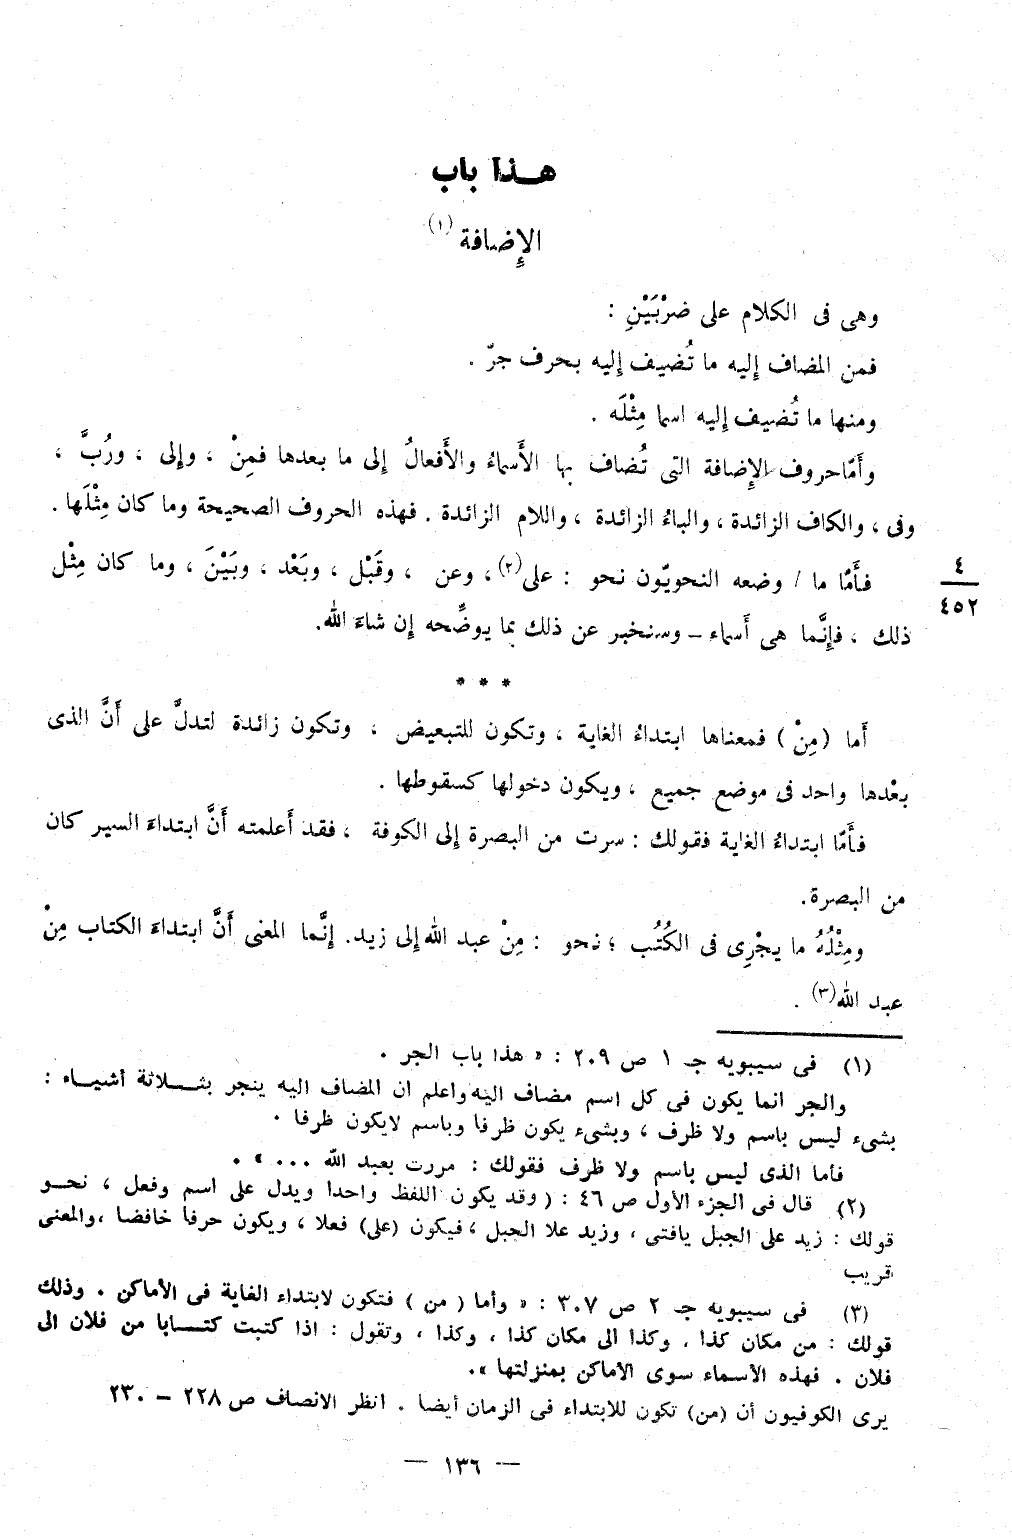 هـذا باب
الإِضافة (١)
وهى فى الكلام على ضرْبَيْنِ :
فمن المضاف إليه ما تُضيف إليه بحرف جرّ .
ومنها ما تُضيف إليه اسما مِثْلَه .
وأَمّا حروف الإِضافة التى تُضاف بها الأَسماءُ والأَفعالُ إلى ما بعدها فمِنْ ، وإلى ، ورُبَّ ،
وفى ، والكاف الزائدة ، والباءُ الزائدة ، واللام الزائدة . فهذه الحروف الصحيحة وما كان مِثْلَها .
فأَمّا ما / وضعه النحويّون نحو : على(٢) ، وعن ، وقَبْل ، وبَعْد ، وبَيْنَ ، وما كان مِثْل
٤
٤٥٢
ذلك ، فإِنَّما هى أَسماء – وسنخبر عن ذلك بما يوضّحه إن شاءَ الله.
* * *
أَما (مِنْ) فمعناها ابتداءُ الغاية ، وتكون للتبعيض ، وتكون زائدة لتدلَّ على أَنَّ الذى
بعْدها واحد فى موضع جميع ، ويكون دخولها كسقوطها .
فأَمّا ابتداءُ الغاية فقولك : سرت من البصرة إلى الكوفة ، فقد أَعلمته أَنَّ ابتداءَ السير كان
من البصرة.
ومِثْلُهُ ما يجْرِى فى الكُتُب ؛ نحو : مِنْ عبد الله إلى زيد. إنَّما المعنى أَنَّ ابتداءَ الكتاب مِنْ
عبد الله(٣) .
(١) فى سيبويه جـ ١ ص ٢٠٩ : « هذا باب الجر .
والجر انما يكون فى كل اسم مضاف اليه واعلم ان المضاف اليه ينجر بثـلاثة أشيـاء :
بشىء ليس باسم ولا ظرف ، وبشىء يكون ظرفا وباسم لايكون ظرفا .
فأما الذى ليس باسم ولا ظرف فقولك : مررت بعبد الله ... » .
(٢) قال فى الجزء الأول ص ٤٦ : ( وقد يكون اللفظ واحدا ويدل على اسم وفعل ، نحـو
قولك : زيد على الجبل يافتى ، وزيد علا الجبل ، فيكون (على) فعلا ، ويكون حرفا خافضا ،والمعنى
قريب
(٣) فى سيبويه جـ ٢ ص ٣٠٧ : « وأما ( من ) فتكون لابتداء الغاية فى الأماكن . وذلك
قولك : من مكان كذا . وكذا الى مكان كذا ، وكذا ، وتقول : اذا كتبت كتـابا من فلان الى
فلان . فهذه الأسماء سوى الأماكن بمنزلتها ».
يرى الكوفيون أن (من) تكون للابتداء فى الزمان أيضا . انظر الانصاف ص ٢٢٨ – ٢٣٠
— ١٣٦ —